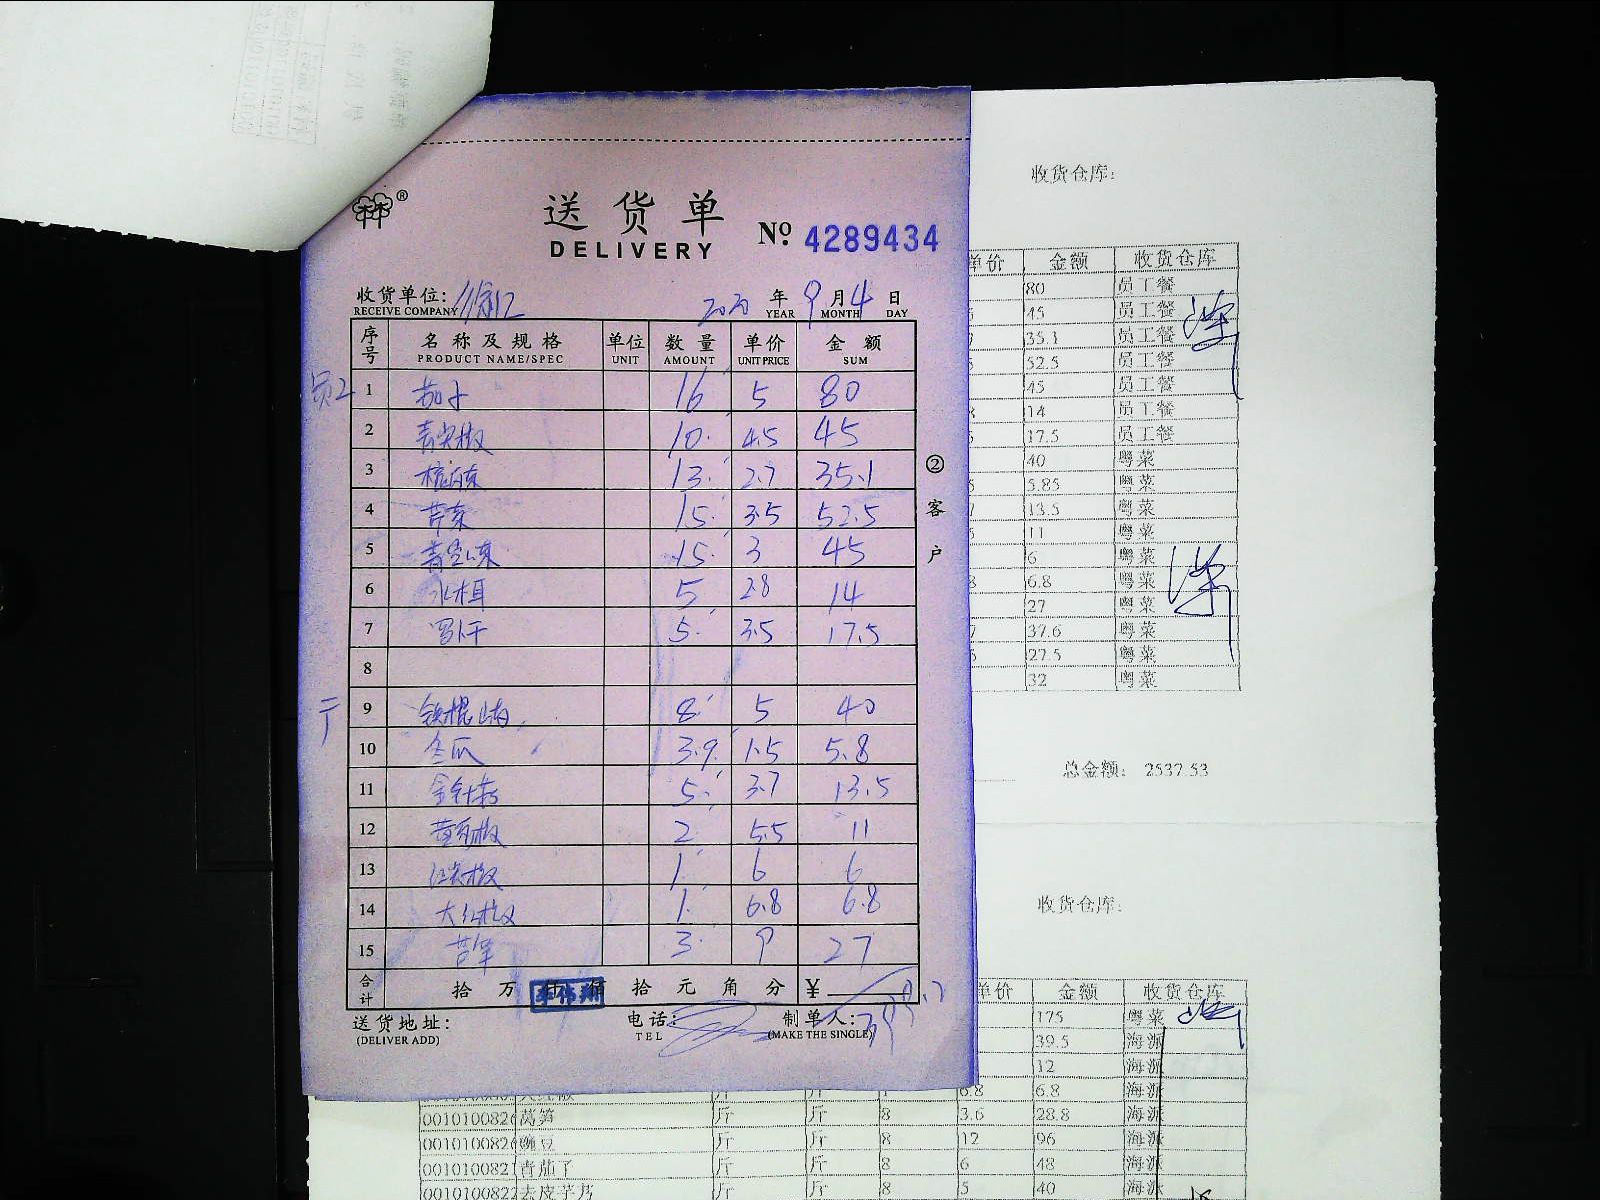 送货单
DELIVERY
Nº 4289434
收货单位:
RECEIVE COMPANY
2020 年 9 月 4 日
YEAR MONTH DAY
序号 名称及规格 单位 数量 单价 金额
PRODUCT NAME/SPEC UNIT AMOUNT UNIT PRICE SUM
员工 1 茄子 16 5 80
2 青尖椒 10 4.5 45
3 13 2.7 35.1
4 芹菜 15 3.5 52.5
5 15 3 45
6 水木耳 5 2.8 14
7 罗卜干 5 3.5 17.5
8
9 铁棍山药 8 5 40
10 冬瓜 3.9 1.5 5.8
11 金针菇 5 3.7 13.5
12 黄彩椒 2 5.5 11
13 1 6 6
14 大红椒 1 6.8 6.8
15 3 9 27
合计 拾 万 仟 佰 拾 元 角 分 ¥
②客户
送货地址:
(DELIVER ADD)
电话:
TEL
制单人:
(MAKE THE SINGLE)
收货仓库:
单价 金额 收货仓库
80 员工餐
45 员工餐
35.1 员工餐
52.5 员工餐
45 员工餐
14 员工餐
17.5 员工餐
40 粤菜
5.85 粤菜
13.5 粤菜
11 粤菜
6 粤菜
6.8 粤菜
27 粤菜
37.6 粤菜
27.5 粤菜
32 粤菜
总金额: 2537.53
收货仓库:
单价 金额 收货仓库
175 粤菜
39.5 海派
12 海派
大红椒 斤 斤 1 6.8 6.8 海派
莴笋 斤 斤 8 3.6 28.8 海派
豌豆 斤 斤 8 12 96 海派
青茄子 斤 斤 8 6 48 海派
去皮芋艿 斤 斤 8 5 40 海派